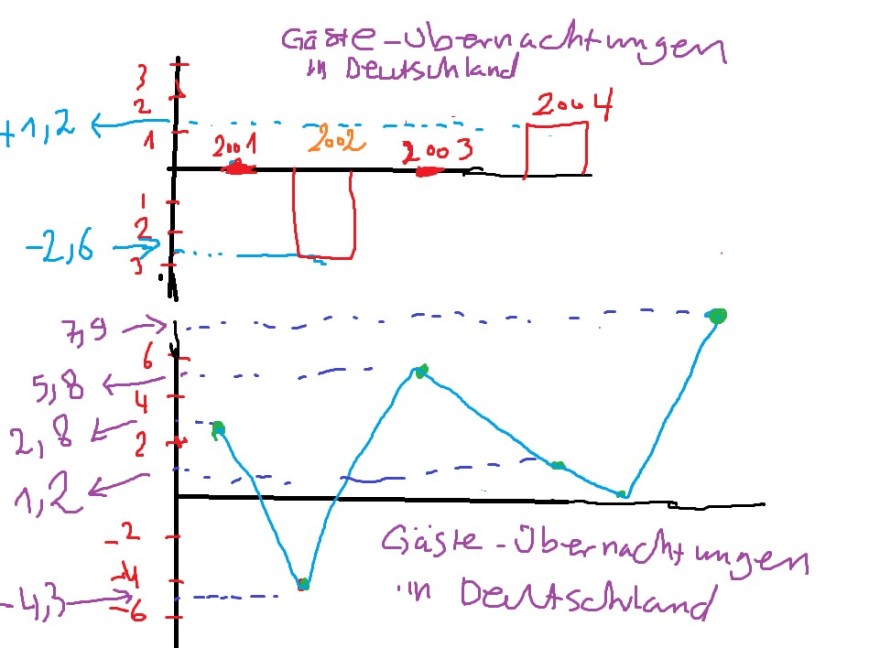 Gäste-Übernachtungen
in Deutschland
3
2
+1,2
1
2001
2002
2003
2004
1
2
-2,6
3
7,9
6
5,8
4
2,8
2
1,2
-2
Gäste-Übernachtungen
-4
in Deutschland
-4,3
-6